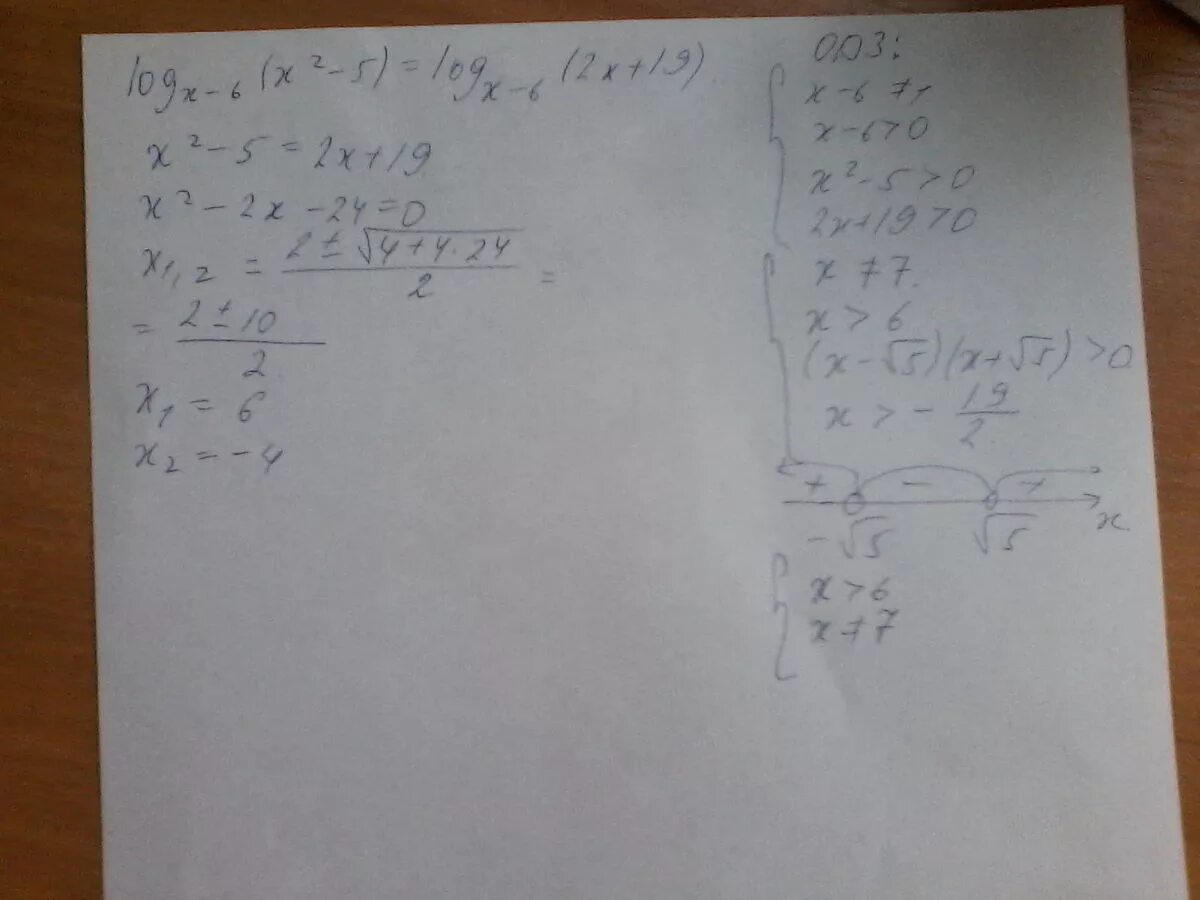 log_{x-6}(x²-5) = log_{x-6}(2x+19)
x²-5 = 2x+19
x²-2x-24=0
x_{1,2} = (2±√(4+4·24))/2 =
= (2±10)/2
x₁ = 6
x₂ = -4
ОДЗ:
x-6≠1
x-6>0
x²-5>0
2x+19>0
x≠7
x>6
(x-√5)(x+√5)>0
x>-19/2
+ - +
-√5 √5 x
x>6
x≠7